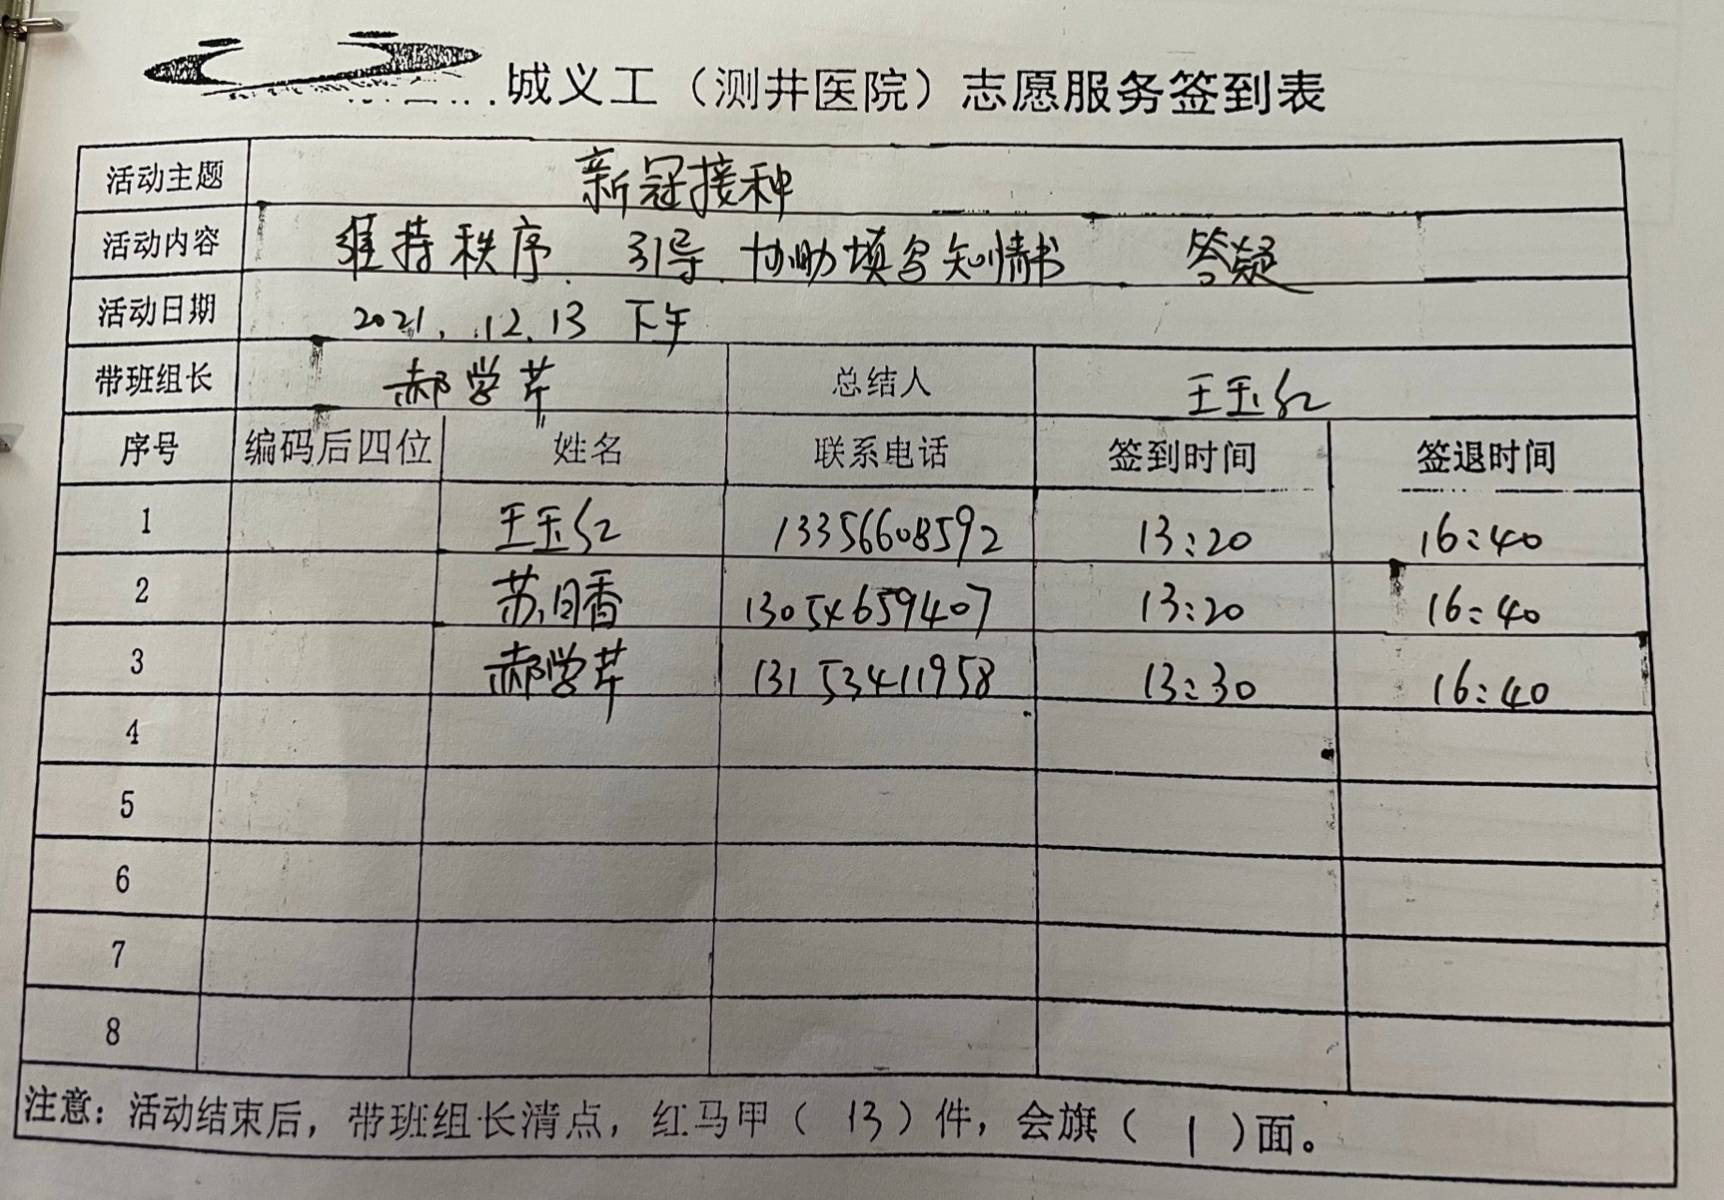 城义工（测井医院）志愿服务签到表
活动主题 新冠接种
活动内容 维持秩序、引导、协助填写知情书 答疑
活动日期 2021.12.13 下午
带班组长 郝学芹 总结人 王玉红
序号 编码后四位 姓名 联系电话 签到时间 签退时间
1 王玉红 13356608592 13:20 16:40
2 苏月香 13054659407 13:20 16:40
3 郝学芹 13153411958 13:30 16:40
4
5
6
7
8
注意：活动结束后，带班组长清点，红马甲（ 13 ）件，会旗（ 1 ）面。